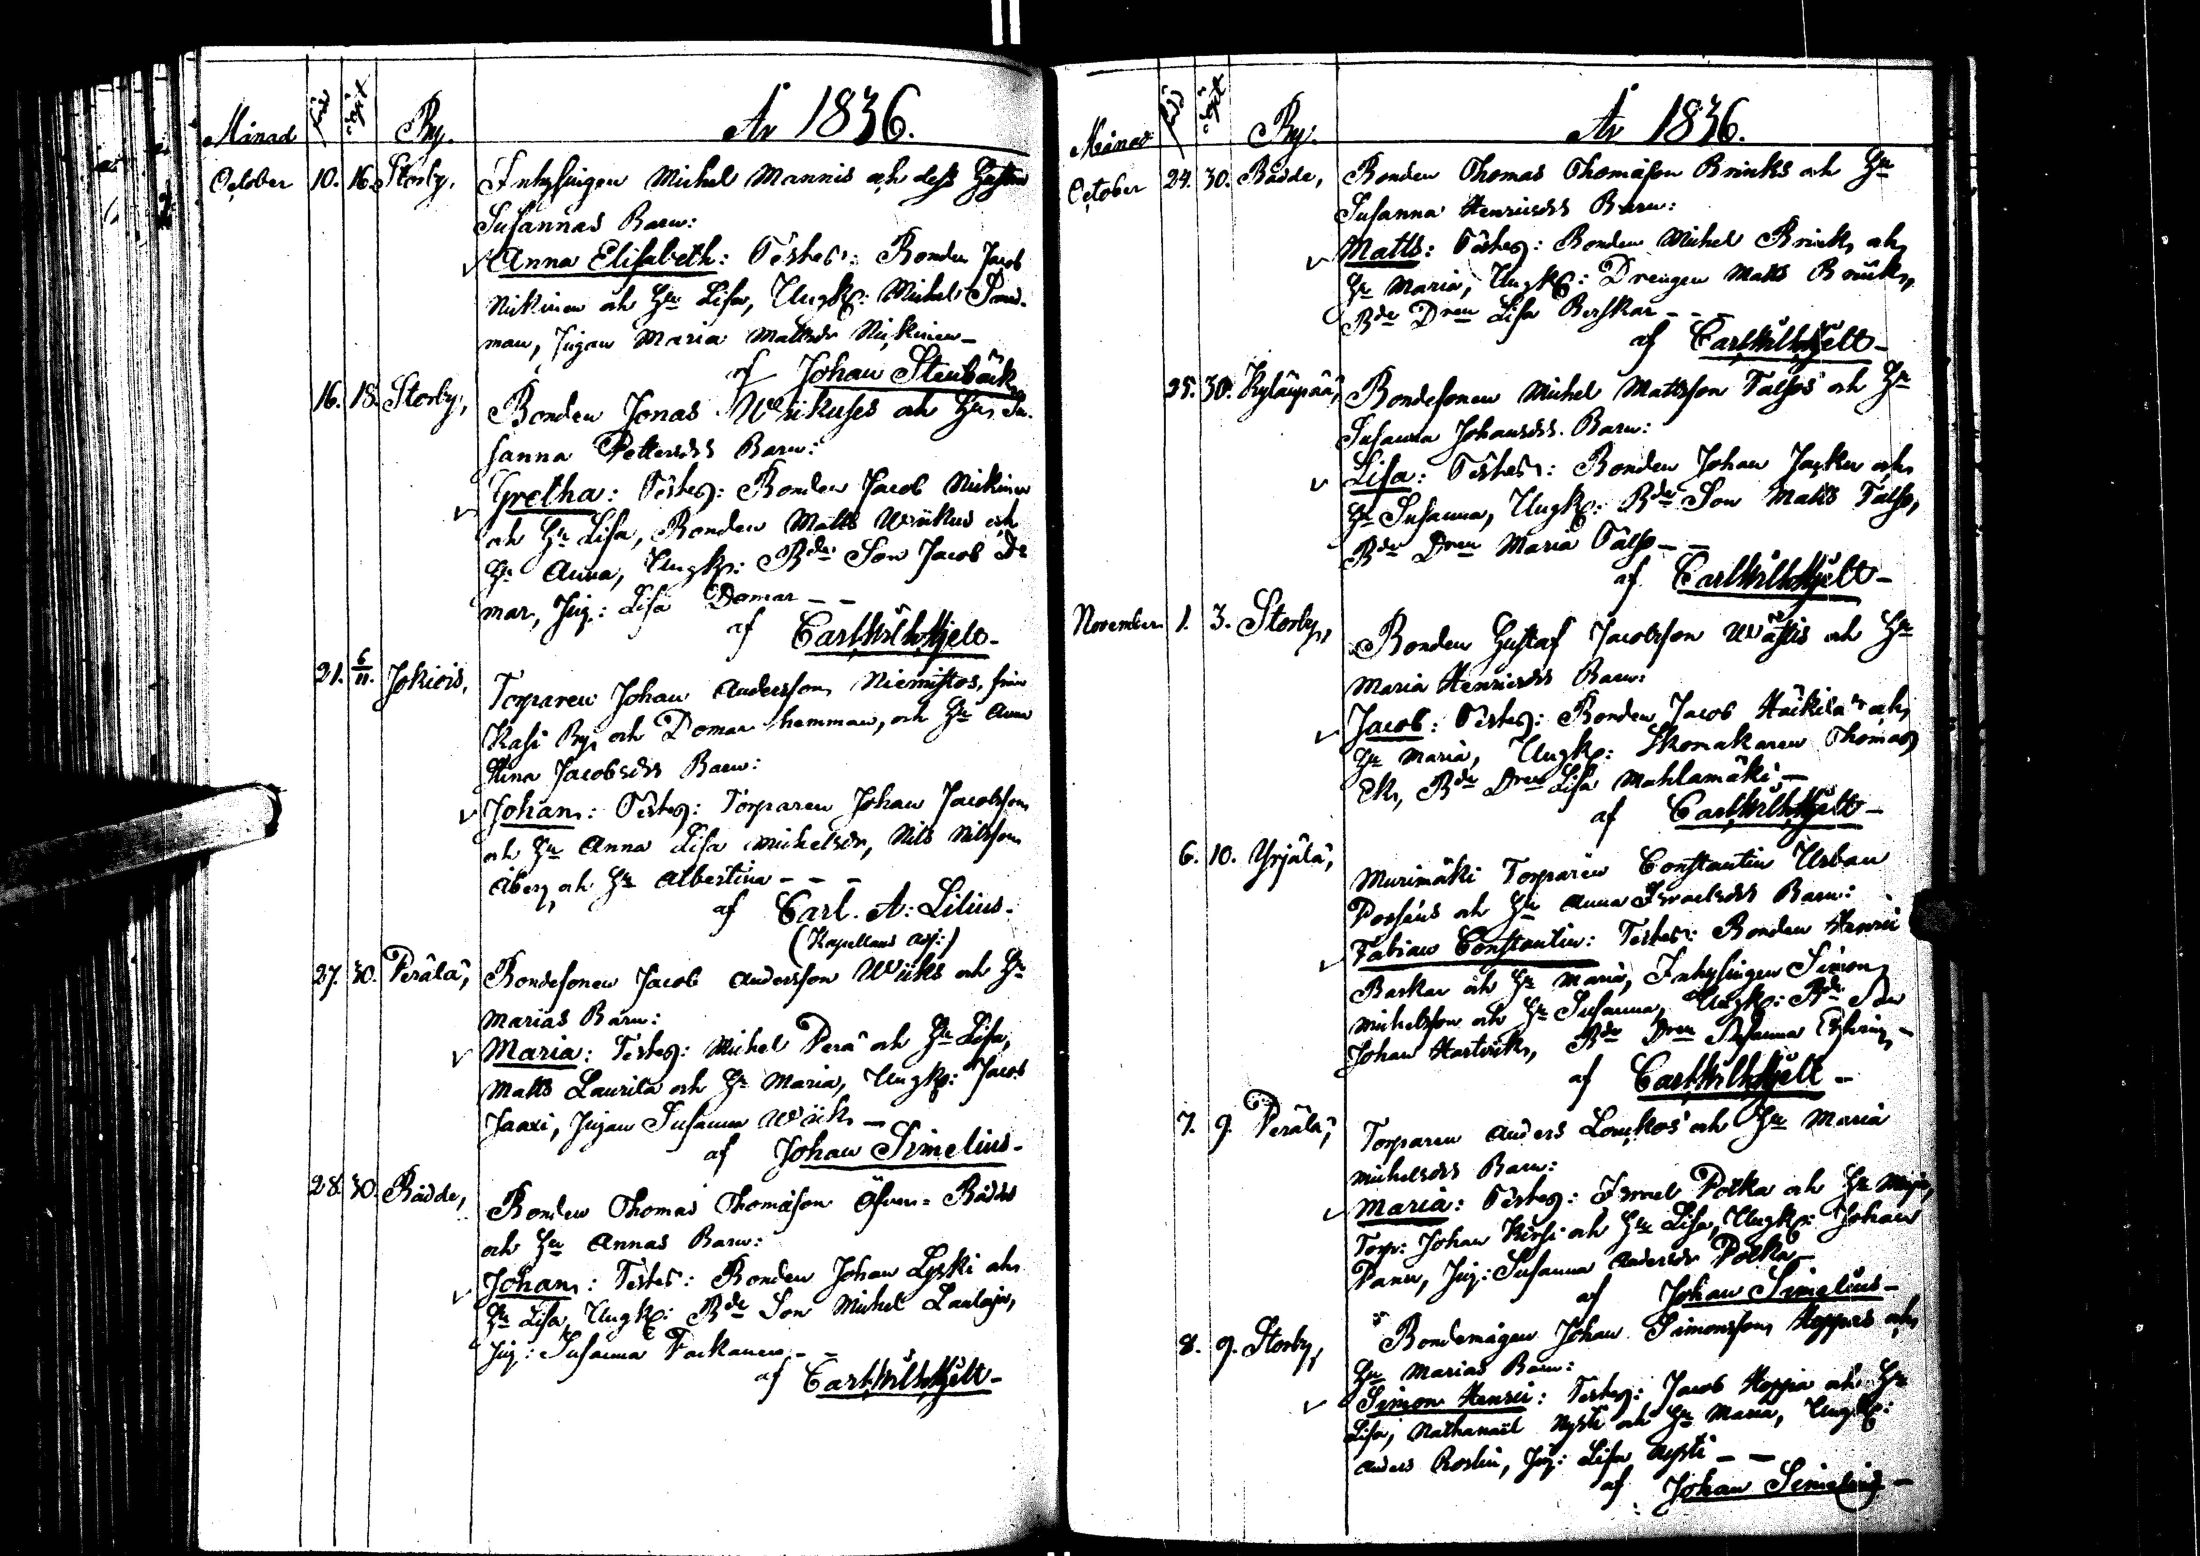 År 1836.
Månad född döpt By.
October 10. 16. Storby, Inhysingen Michel Mannis och dess Hustru
Susannas Barn:
Anna Elisabeth: Testes: Bonden Jacob
Nickinen och Hu Lisa, Ungk: Michel
man, Pigan Maria Mattsdr Nickinen —
af Johan Stenbäck
16. 18. Storby, Bonden Jonas Wiikuses och Hu Su-
sanna Pettersdrs Barn:
Gretha: Testes: Bonden Jacob Nickinen
och Hu Lisa, Bonden Matts Wiikus och
Hu Anna, Ungk: Bde Son Jacob Do
mar, Pig: Lisa Domar — —
af Carl Wilh Hjelt —
21. 6/11. Jokiois, Torparen Johan Andersson Niemistos, från
Kasi By och Domar hemman, och Hu Anna
Stina Jacobsdrs Barn:
Johan: Testes: Torparen Johan Jacobsson
och Hu Anna Lisa Michelsdr, Nils Nilsson
Åberg och Hu Albertina — — —
af Carl. A: Lilius.
(Kapellans adj:)
27. 30. Perälä, Bondesonen Jacob Andersson Wiiks och Hu
Marias Barn:
Maria: Testes: Michel Perä och Hu Lisa,
Matts Laurila och Hu Maria, Ungk: Jacob
Jaaxi, Pigan Susanna Wiik —
af Johan Simelius.
28. 30. Bådde, Bonden Thomas Thomasson Öfver-Bådds
och Hu Annas Barn:
Johan: Testes: Bonden Johan Lyski och
Hu Lisa, Ungk: Bde Son Michel
Pig: Susanna — —
af Carl Wilh Hjelt —
År 1836.
Månad född döpt By.
October 24. 30. Bådde, Bonden Thomas Thomasson Brinks och Hu
Susanna Henricsdrs Barn:
Matts: Testes: Bonden Michel Brink och
Hu Maria, Ungk: Drengen Matts Brink,
Bde Dren Lisa — —
af Carl Wilh Hjelt —
25. 30. Kyläupää, Bondesonen Michel Mattsson Talsos och Hu
Susanna Johansdrs Barn:
Lisa: Testes: Bonden Johan och
Hu Susanna, Ungk: Bde Son Matts Talso,
Bde Dren Maria Talso — —
af Carl Wilh Hjelt —
November 1. 3. Storby, Bonden Gustaf Jacobsson och Hu
Maria Henricsdrs Barn:
Jacob: Testes: Bonden Jacob Häikilä och
Hu Maria, Ungk: Skomakaren Thomas
Ek, Bde Dren Lisa Mahlamäki —
af Carl Wilh Hjelt —
6. 10. Yrjälä, Murimäki Torparen Constantin Urban
och Hu Anna Israelsdrs Barn:
Fabian Constantin: Testes: Bonden Henric
Barkar och Hu Maria, Inhysingen Simon
Michelsson och Hu Susanna, Ungk: Bde Son
Johan Hartvik, Bde Dren Susanna —
af Carl Wilh Hjelt —
7. 9. Perälä, Torparen Anders Loukos och Hu Maria
Michelsdrs Barn:
Maria: Testes: Israel Polka och Hu Maja,
Torp: Johan Kirsi och Hu Lisa, Ungk: Johan
Panu, Pig: Susanna Andersdr Polka —
af Johan Simelius —
8. 9. Storby, Bondemågen Johan Simonsson Hoppas och
Hu Marias Barn:
Simon Henric: Testes: Jacob Hoppa och Hu
Lisa, Nathanael Nysti och Hu Maria, Ungk:
Anders Roslin, Pig: Lisa Nysti — —
af Johan Simelius —